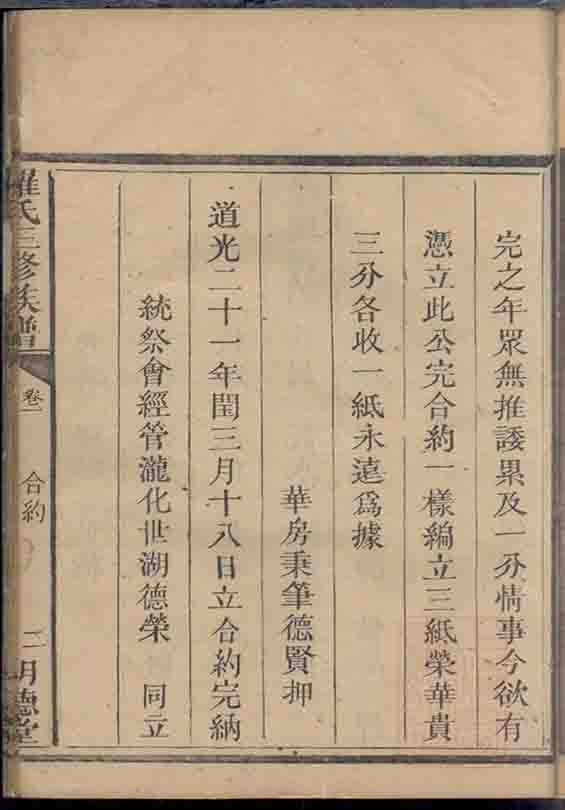 完之年眾無推諉累及一分情事今欲有
憑立此公完合約一樣編立三紙榮華貴
三分各收一紙永遠為據
華房秉筆德賢押
道光二十一年閏三月十八日立合約完納
統祭會經管瀧化世湖德榮 同立
羅氏三修族譜
卷一
合約
二
明德堂